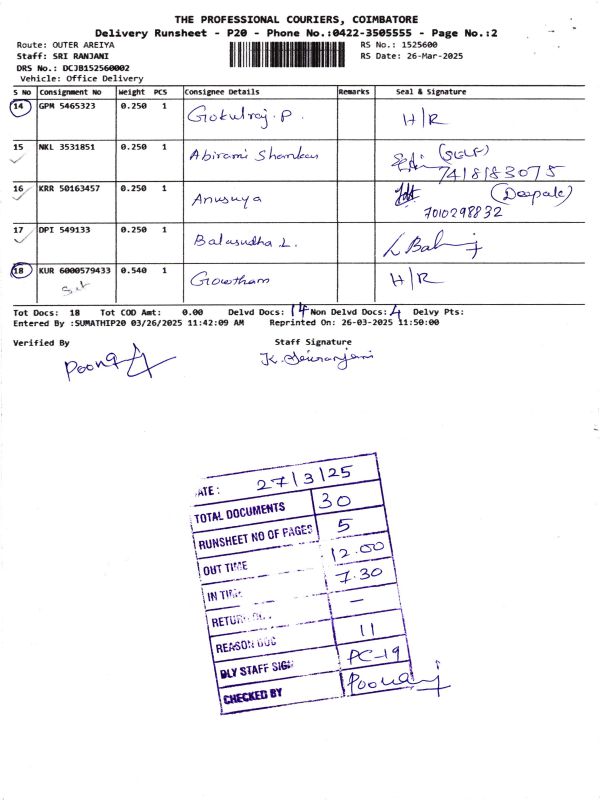 THE PROFESSIONAL COURIERS, COIMBATORE
Delivery Runsheet - P20 - Phone No.:0422-3505555 - Page No.:2
Route: OUTER AREIYA RS No.: 1525600
Staff: SRI RANJANI RS Date: 26-Mar-2025
DRS No.: DCJB152560002
Vehicle: Office Delivery
S No Consignment No Weight PCS Consignee Details Remarks Seal & Signature
14 GPM 5465323 0.250 1 Gokulraj. P. H/R
15 NKL 3531851 0.250 1 Abirami Shankar (SELF)
7418183075
16 KRR 50163457 0.250 1 Anusuya (Deepak)
7010298832
17 DPI 549133 0.250 1 Balasudha L.
18 KUR 6000579433 0.540 1 Gowtham H/R
Tot Docs: 18 Tot COD Amt: 0.00 Delvd Docs: 14 Non Delvd Docs: 4 Delvy Pts:
Entered By :SUMATHIP20 03/26/2025 11:42:09 AM Reprinted On: 26-03-2025 11:50:00
Verified By Staff Signature
ATE: 27/3/25
TOTAL DOCUMENTS 30
RUNSHEET NO OF PAGES 5
OUT TIME 12.00
IN TIME 7.30
RETURN –
REASON DOC 11
DLY STAFF SIGN PC-19
CHECKED BY